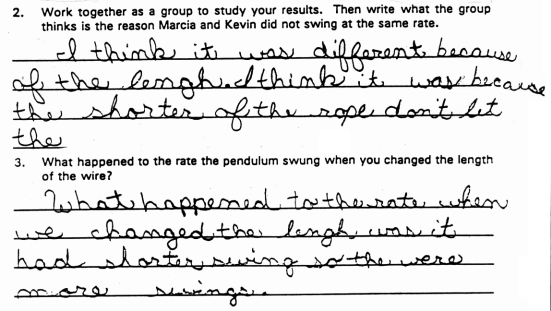 2. Work together as a group to study your results. Then write what the group
thinks is the reason Marcia and Kevin did not swing at the same rate.
I think it was different because
of the lengh. I think it was because
the shorter of the rope don't let
the
3. What happened to the rate the pendulum swung when you changed the length
of the wire?
What happened to the rate when
we changed the lengh was it
had shorter swing so the were
more swings.